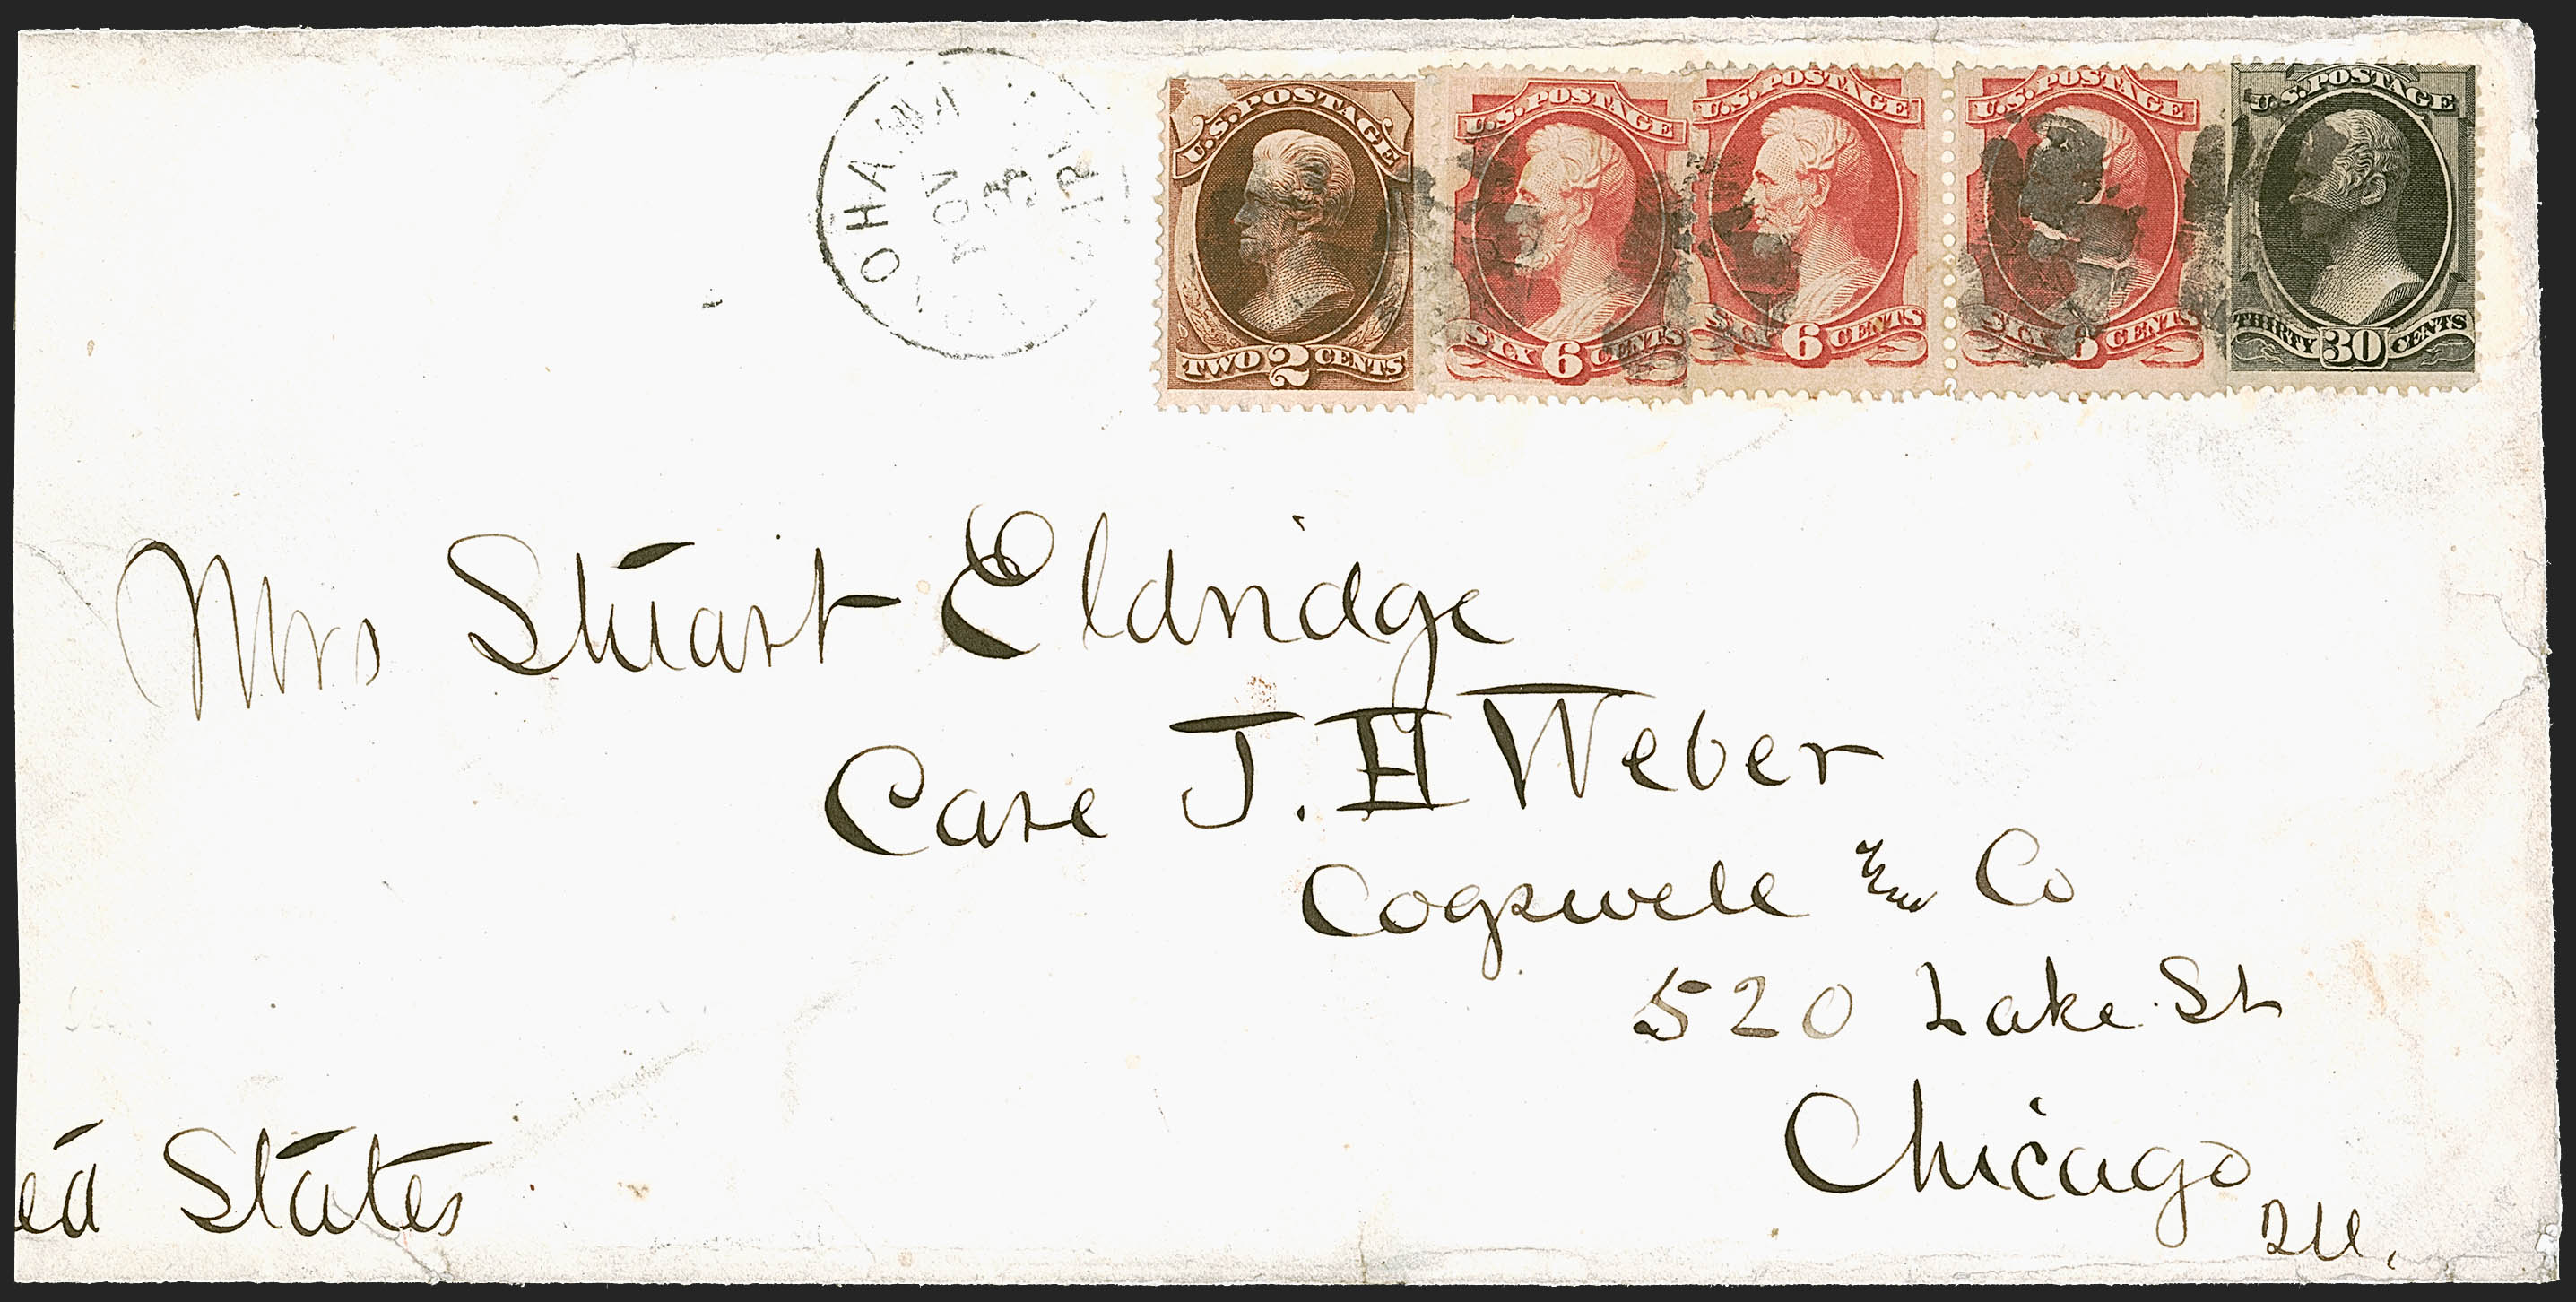 U.S. POSTAGE
TWO 2 CENTS
U.S. POSTAGE
SIX 6 CENTS
U.S. POSTAGE
SIX 6 CENTS
U.S. POSTAGE
SIX 6 CENTS
U.S. POSTAGE
THIRTY 30 CENTS
OHAMA
NOV
3
Mrs Stuart Eldridge
Care J. H Weber
Cogswell & Co
520 Lake St
Chicago
Ill.
ed States